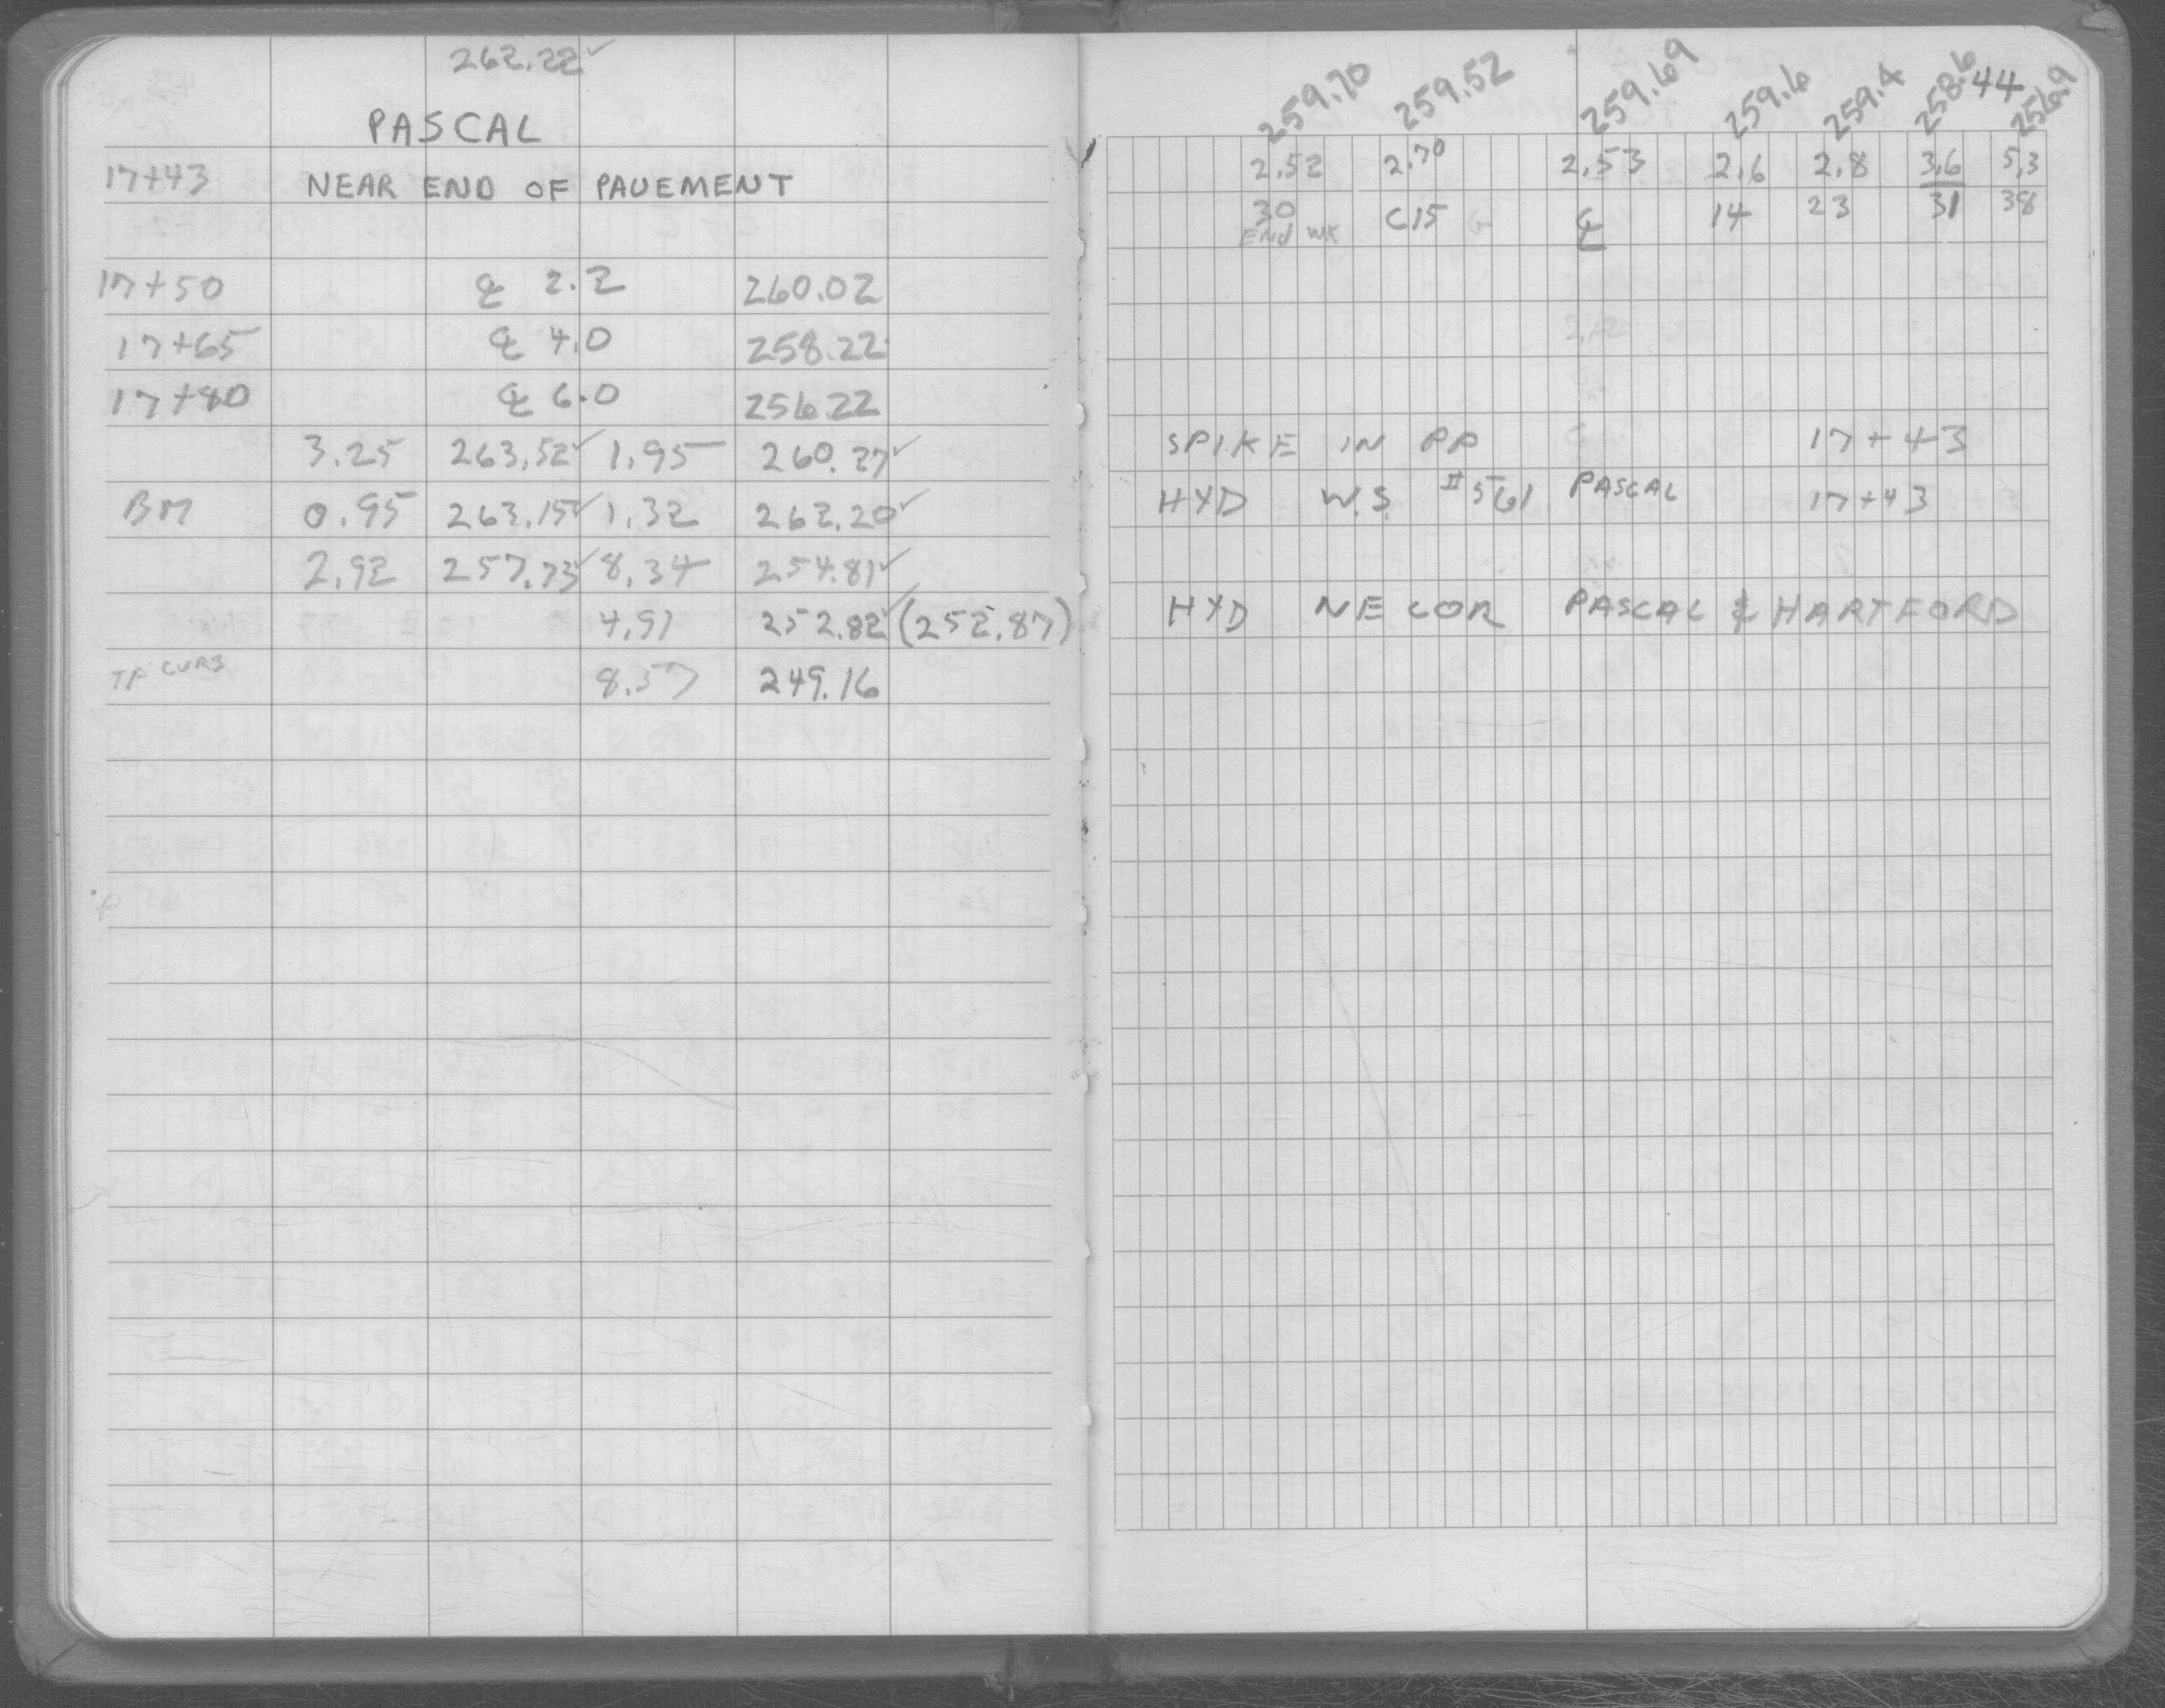 262.22✓
PASCAL
17+43 NEAR END OF PAVEMENT
17+50 ℄ 2.2 260.02
17+65 ℄ 4.0 258.22
17+80 ℄ 6.0 256.22
3.25 263.52✓ 1.95 260.27✓
BM 0.95 263.15✓ 1.32 262.20✓
2.92 257.73✓ 8.34 254.81✓
4.91 252.82✓ (252.87)
TP CURB 8.57 249.16
44
259.70 259.52 259.69 259.6 259.4 258.6 256.9
2.52 2.70 2.53 2.6 2.8 3.6 5.3
30 C15 ℄ 14 23 31 38
END WK
SPIKE IN PP 17+43
HYD W.S. #561 PASCAL 17+43
HYD NE COR PASCAL & HARTFORD